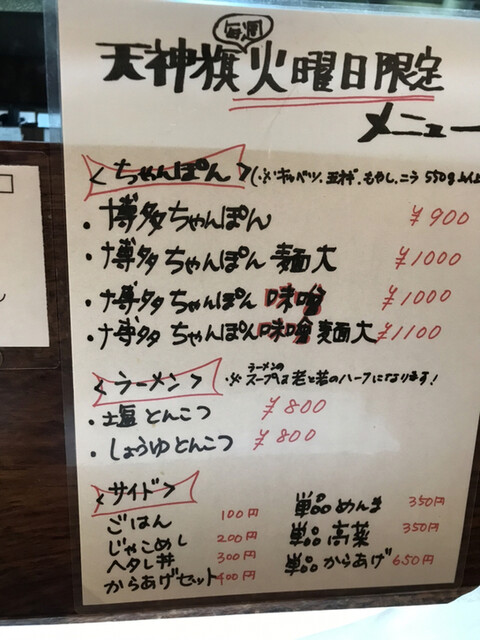 毎週
天神旗火曜日限定
メニュー
<ちゃんぽん>(※キャベツ、玉ネギ、もやし、ニラ 550g以上
・博多ちゃんぽん ¥900
・博多ちゃんぽん麺大 ¥1000
・博多ちゃんぽん味噌 ¥1000
・博多ちゃんぽん味噌麺大 ¥1100
<ラーメン> ※ラーメンのスープは老と若のハーフになります!
・塩とんこつ ¥800
・しょうゆとんこつ ¥800
<サイド>
ごはん 100円
じゃこめし 200円
ヘタし丼 300円
からあげセット 400円
単品めんま 350円
単品高菜 350円
単品からあげ 650円